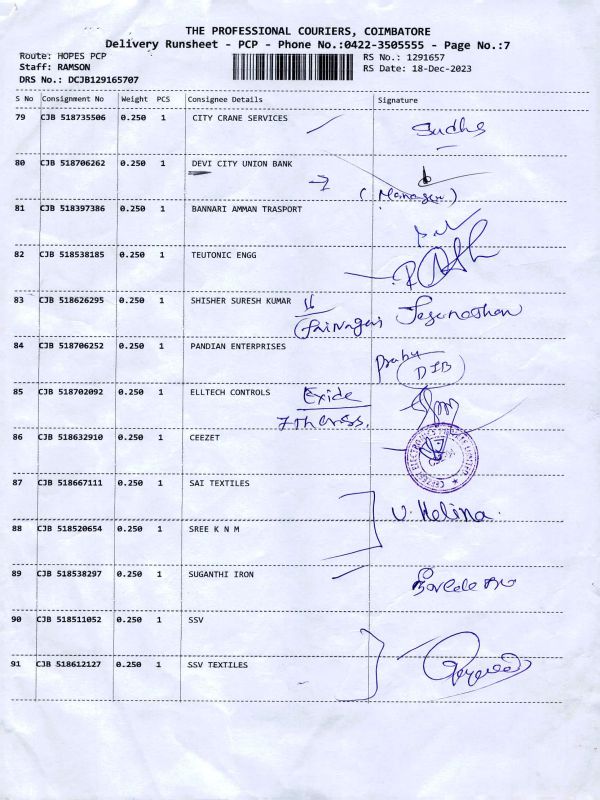 THE PROFESSIONAL COURIERS, COIMBATORE
Delivery Runsheet - PCP - Phone No.:0422-3505555 - Page No.:7
Route: HOPES PCP RS No.: 1291657
Staff: RAMSON RS Date: 18-Dec-2023
DRS No.: DCJB129165707
S No Consignment No Weight PCS Consignee Details Signature
79 CJB 518735506 0.250 1 CITY CRANE SERVICES Sudhs
80 CJB 518706262 0.250 1 DEVI CITY UNION BANK
(Manager)
81 CJB 518397386 0.250 1 BANNARI AMMAN TRASPORT
82 CJB 518538185 0.250 1 TEUTONIC ENGG
83 CJB 518626295 0.250 1 SHISHER SURESH KUMAR
(Jainagar Jeganathan
84 CJB 518706252 0.250 1 PANDIAN ENTERPRISES
prabu
(DIB)
85 CJB 518702092 0.250 1 ELLTECH CONTROLS Exide
7th cross.
86 CJB 518632910 0.250 1 CEEZET
87 CJB 518667111 0.250 1 SAI TEXTILES
U. Helina.
88 CJB 518520654 0.250 1 SREE K N M
89 CJB 518538297 0.250 1 SUGANTHI IRON
90 CJB 518511052 0.250 1 SSV
91 CJB 518612127 0.250 1 SSV TEXTILES